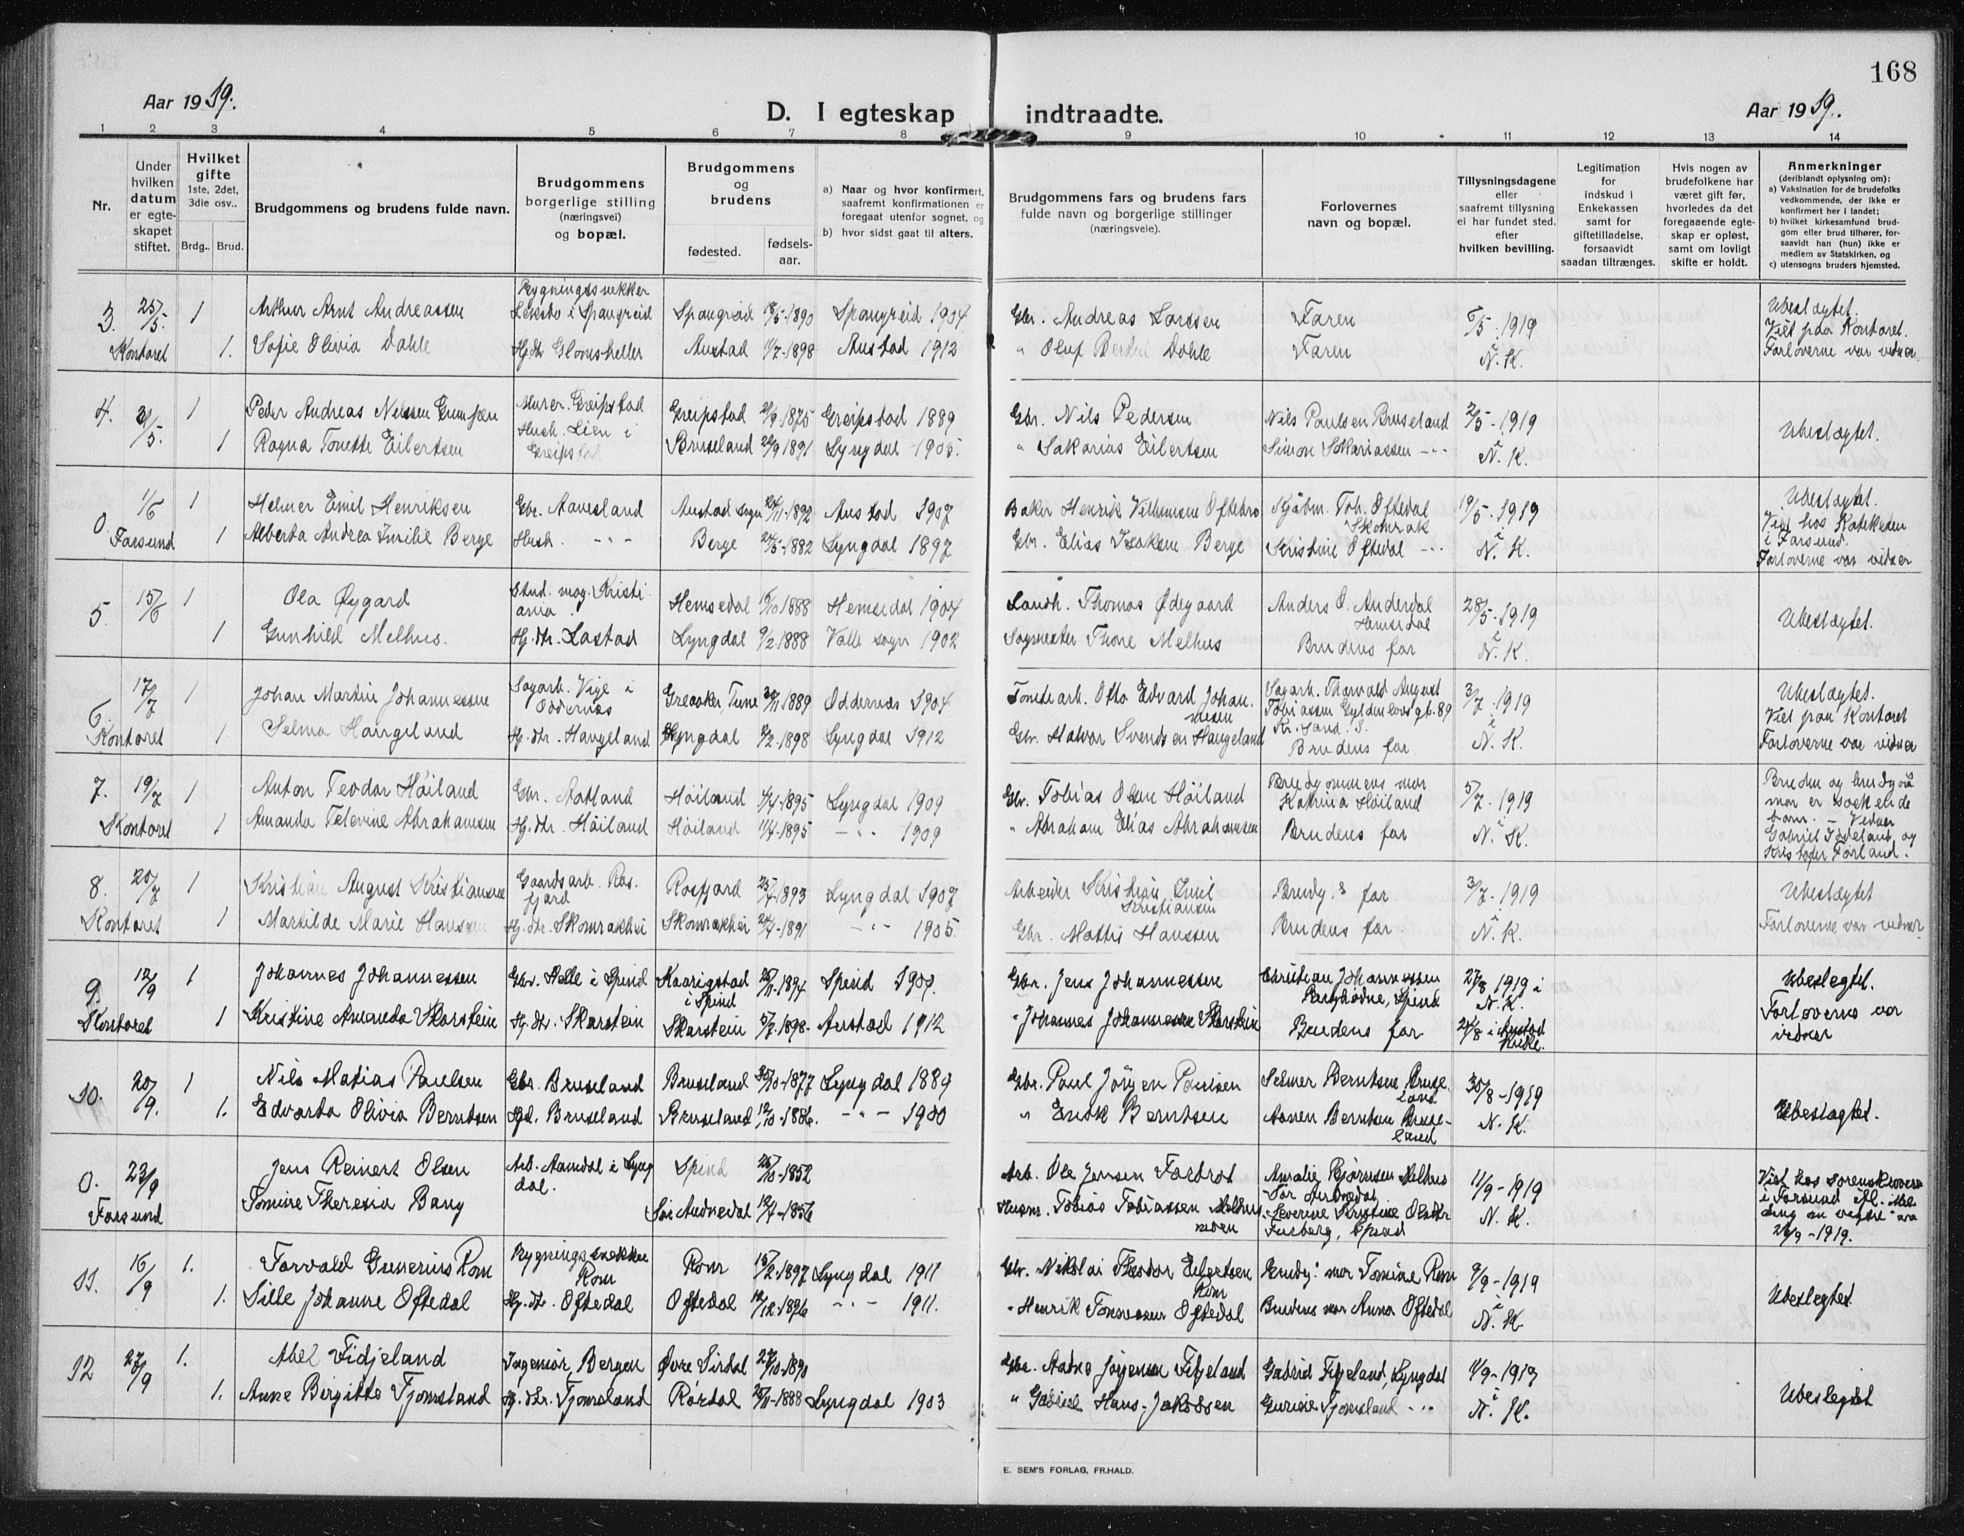 168
Aar 1919.
D. I egteskap indtraadte.
Aar 1919.
1 2 3 4 5 6 7 8 9 10 11 12 13 14
Nr.
Under hvilken datum er egteskapet stiftet.
Hvilket gifte 1ste, 2det, 3die osv..
Brdg.. Brud.
Brudgommens og brudens fulde navn.
Brudgommens borgerlige stilling (næringsvei) og bopæl.
Brudgommens og brudens
fødested. fødselsaar.
a) Naar og hvor konfirmert, saafremt konfirmationen er foregaat utenfor sognet, og
b) hvor sidst gaat til alters.
Brudgommens fars og brudens fars fulde navn og borgerlige stillinger (næringsveie).
Forlovernes navn og bopæl.
Tillysningsdagene eller saafremt tillysning ei har fundet sted. efter hvilken bevilling.
Legitimation for indskud i Enkekassen samt for giftetilladelse, forsaavidt saadan tiltrænges.
Hvis nogen av brudefolkene har været gift før, hvorledes da det foregaaende egteskap er opløst, samt om lovligt skifte er holdt.
Anmerkninger (deriblandt oplysning om):
a) Vaksination for de brudefolks vedkommende, der ikke er konfirmert her i landet;
b) hvilket kirkesamfund brudgom eller brud tilhører, forsaavidt han (hun) ikke er medlem av Statskirken, og
c) utensogns bruders hjemsted.
3. 25/5. 1 Arthur Arnt Andreassen Bygningssnekker Leksbo i Spangreid Spangreid 1890 Spangreid 1904 Gbr. Andreas Larssen Faren 6/5-1919 Ubeslægtet.
Kontoret 1. Sofie Olivia Dahle Hj.dtr. Glomsheller Austad 1/7-1898 Austad 1912 " Oluf Dahle Faren i N. K. Viet paa Kontoret. Forloverne var vidner
4. 31/5. 1 Peder Andreas Nilssen Murer. Greipstad Greipstad 1875 Greipstad 1889 Gbr. Nils Pedersen Nils Paulsen Bruseland 2/5-1919 Ubeslægtet.
1 Ragna Tonette Eilertsen Hush. Lien i Greipstad Bruseland 1891 Lyngdal 1905. " Sakarias Eilertsen Simon Sakariassen -"- i N. K.
0. 1/6 1 Helmer Emil Henriksen Gbr. Aamesland Austad sogn 1892 Austad 1907 Baker Henrik Vilhemsen Oftebro Kjøbm. Tob. Oftedal Skomrak 19/5-1919 Ubeslægtet.
Farsund 1 Alberta Andrea Emilie Berge Hush. -"- Berge 1882 Lyngdal 1897 Gbr. Elias Isaksen Berge Kristine Oftedal -"- i N. K. Viet hos Katekeden i Farsund. Forloverne var vidner
5. 15/6 1 Ola Øygard Stud. mag. Kristiania. Hemsedal 1888 Hemsedal 1904 Landh. Thomas Ødegaard Anders O. Anderdal Hemsedal 28/5-1919 Ubeslægtet.
1 Gunhild Melhus. Hj.dtr. Lastad Lyngdal 9/2-1888 Valle sogn 1902 Sogneprester Thone Melhus Brudens far i N. K.
6. 17/7 1 Johan Martin Johannessen Sagarb. Vige i Oddernes Greaaker Tune 1889 Oddernes 1904 Tomtearb. Otto Edvard Johannessen Sagarb. Thorvald August Tobiassen Gyldenløvsgt. 89 Kr.sand. S. 3/7-1919 Ubeslægtet.
Kontoret 1. Selma Haugeland Hj.dtr. Haugeland Lyngdal 1898 Lyngdal 1912 Gbr. Halvor Svendsen Haugeland Brudens far. i N. K. Viet paa Kontoret Forloverne var vidner
7. 19/7 1 Anton Teodor Høiland Gbr. Aatland Høiland 1895 Lyngdal 1909 Gbr. Tobias Olsen Høiland Brudgommens mor Katrina Høiland 5/7-1919 Bruden og brudgoms mor er søskendebarn. - Vidner
Kontoret 1 Amanda Televine Abrahamsen Hj.dtr. Høiland Høiland 1895 -"- 1909 " Abraham Elias Abrahamsen Brudens far i N. K. Gabriel Ødeland og Kristofer Førland.
8. 20/7 1 Kristian August Kristiansen Gaardsarb. Rosfjord Rosfjord 1893 Lyngdal 1907 Arbeider Kristian Emil Kristiansen Brudg.s far 3/7-1919 Ubeslægtet
Kontoret 1 Matilde Marie Hanssen Hj.dtr. Skomrakhei Skomrakhei 1891 -"- 1905. Gbr. Mattis Hanssen Brudens far. i N. K. Forloverne var vidner.
9. 12/9 1 Johannes Johannessen Gbr. Helle i Spind Kaarigstad i Spind 1894 Spind 1909. Gbr. Jens Johannessen Christian Johannessen Spind 27/8 1919 i N. K. Ubeslegtet.
Kontoret 1 Kristine Amanda Skarstein Hj.dtr. Skarstein Skarstein 1898 Austad 1912 " Johannes Johannessen Skarstein Brudens far 24/8 i Austad Kirke. Forloverne var vidner
10. 20/9. 1 Nils Matias Paulsen Gbr. Bruseland Bruseland 30/10-1877 Lyngdal 1889 Gbr. Paul Jörgen Paulsen Selmer Berntsen Bruseland 30/8-1919 Ubeslagtet.
1. Edvarda Olivia Berntsen Hjd. Bruseland Bruseland 12/10-1886. -"- 1900 " Enok Berntsen Aanen Berntsen Bruseland N. K.
0. 23/9 Jens Reinert Olsen Arb. Aamdal i Lyngdal. Spind 1852 Arb. Ole Jensen Amalie Bjørnsen Melhus Sør Audnedal 11/9-1919 Viet hos sorenskriveren i Farsund
Farsund Tomine Theresia Bang Sør Audnedal 1856 Husm. Tobias Tobiassen Severine Kristine Furberg, Spind N. K. 1919.
11. 16/9 1. Torvald Gunerius Rom Bygningssnekker Rom Rom 1897 Lyngdal 1911 Gbr. Nikolai Theodor Eilertsen Rom Brudg: mor Tomine Rom 9/9-1919 Ubeslegtet.
1. Sille Johanne Oftedal Hj.dtr. Oftedal Oftedal 1896 -"- 1911. " Henrik Tønnessen Oftedal Brudens mor Anna Oftedal i N. K.
12 27/9 1. Abel Fidjeland Ingeniør, Bergen Øvre Sirdal 1890 Gbr. Aadne Jørgensen Fidjeland Gabriel Fidjeland, Lyngdal 11/9-1919 Ubeslegtet
1. Anne Birgitte Tjomsland Hj.dtr. Tjomsland Rørdal 1888 Lyngdal 1903 " Gabriel Hans Jakobsen Gurine Tjomsland -"- i N. K.
E. SEM'S FORLAG, FR.HALD.